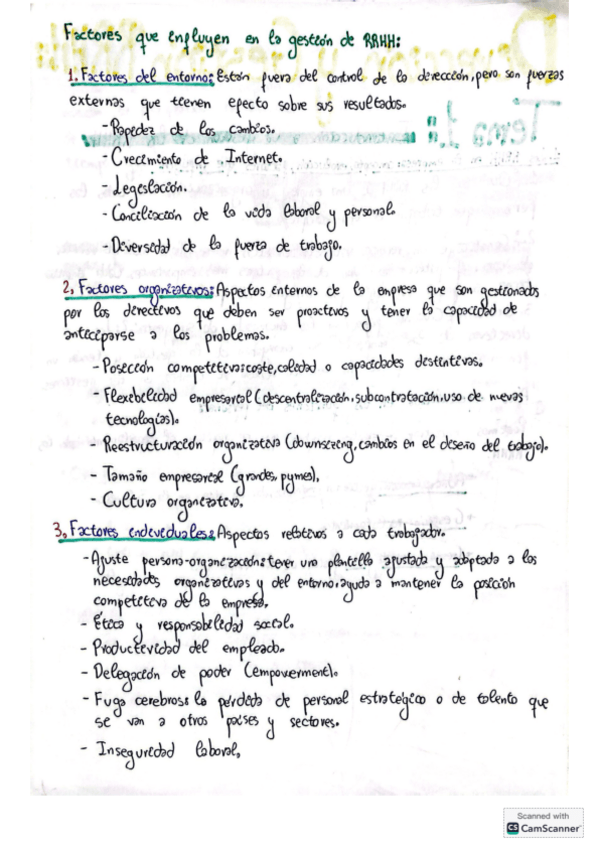 Factores que influyen en la gestión de RRHH:
1. Factores del entorno: Están fuera del control de la dirección, pero son fuerzas
externas que tienen efecto sobre sus resultados.
- Rapidez de los cambios.
- Crecimiento de Internet.
- Legislación.
- Conciliación de la vida laboral y personal.
- Diversidad de la fuerza de trabajo.
2. Factores organizativos: Aspectos internos de la empresa que son gestionados
por los directivos que deben ser proactivos y tener la capacidad de
anticiparse a los problemas.
- Posición competitiva: coste, calidad o capacidades distintivas.
- Flexibilidad empresarial (descentralización, subcontratación, uso de nuevas
tecnologías).
- Reestructuración organizativa (downsizing, cambios en el diseño del trabajo).
- Tamaño empresarial (grandes, pymes).
- Cultura organizativa.
3. Factores individuales: Aspectos relativos a cada trabajador.
- Ajuste persona-organización: tener una plantilla ajustada y adaptada a las
necesidades organizativas y del entorno, ayuda a mantener la posición
competitiva de la empresa.
- Ética y responsabilidad social.
- Productividad del empleado.
- Delegación de poder (empowerment).
- Fuga cerebros: la pérdida de personal estratégico o de talento que
se van a otros países y sectores.
- Inseguridad laboral.
Scanned with
CS CamScanner